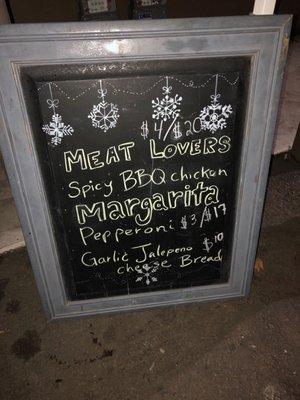 $4/$20
Meat Lovers
Spicy BBQ chicken
Margarita
Pepperoni $3/$17
Garlic Jalepeno $10
cheese Bread